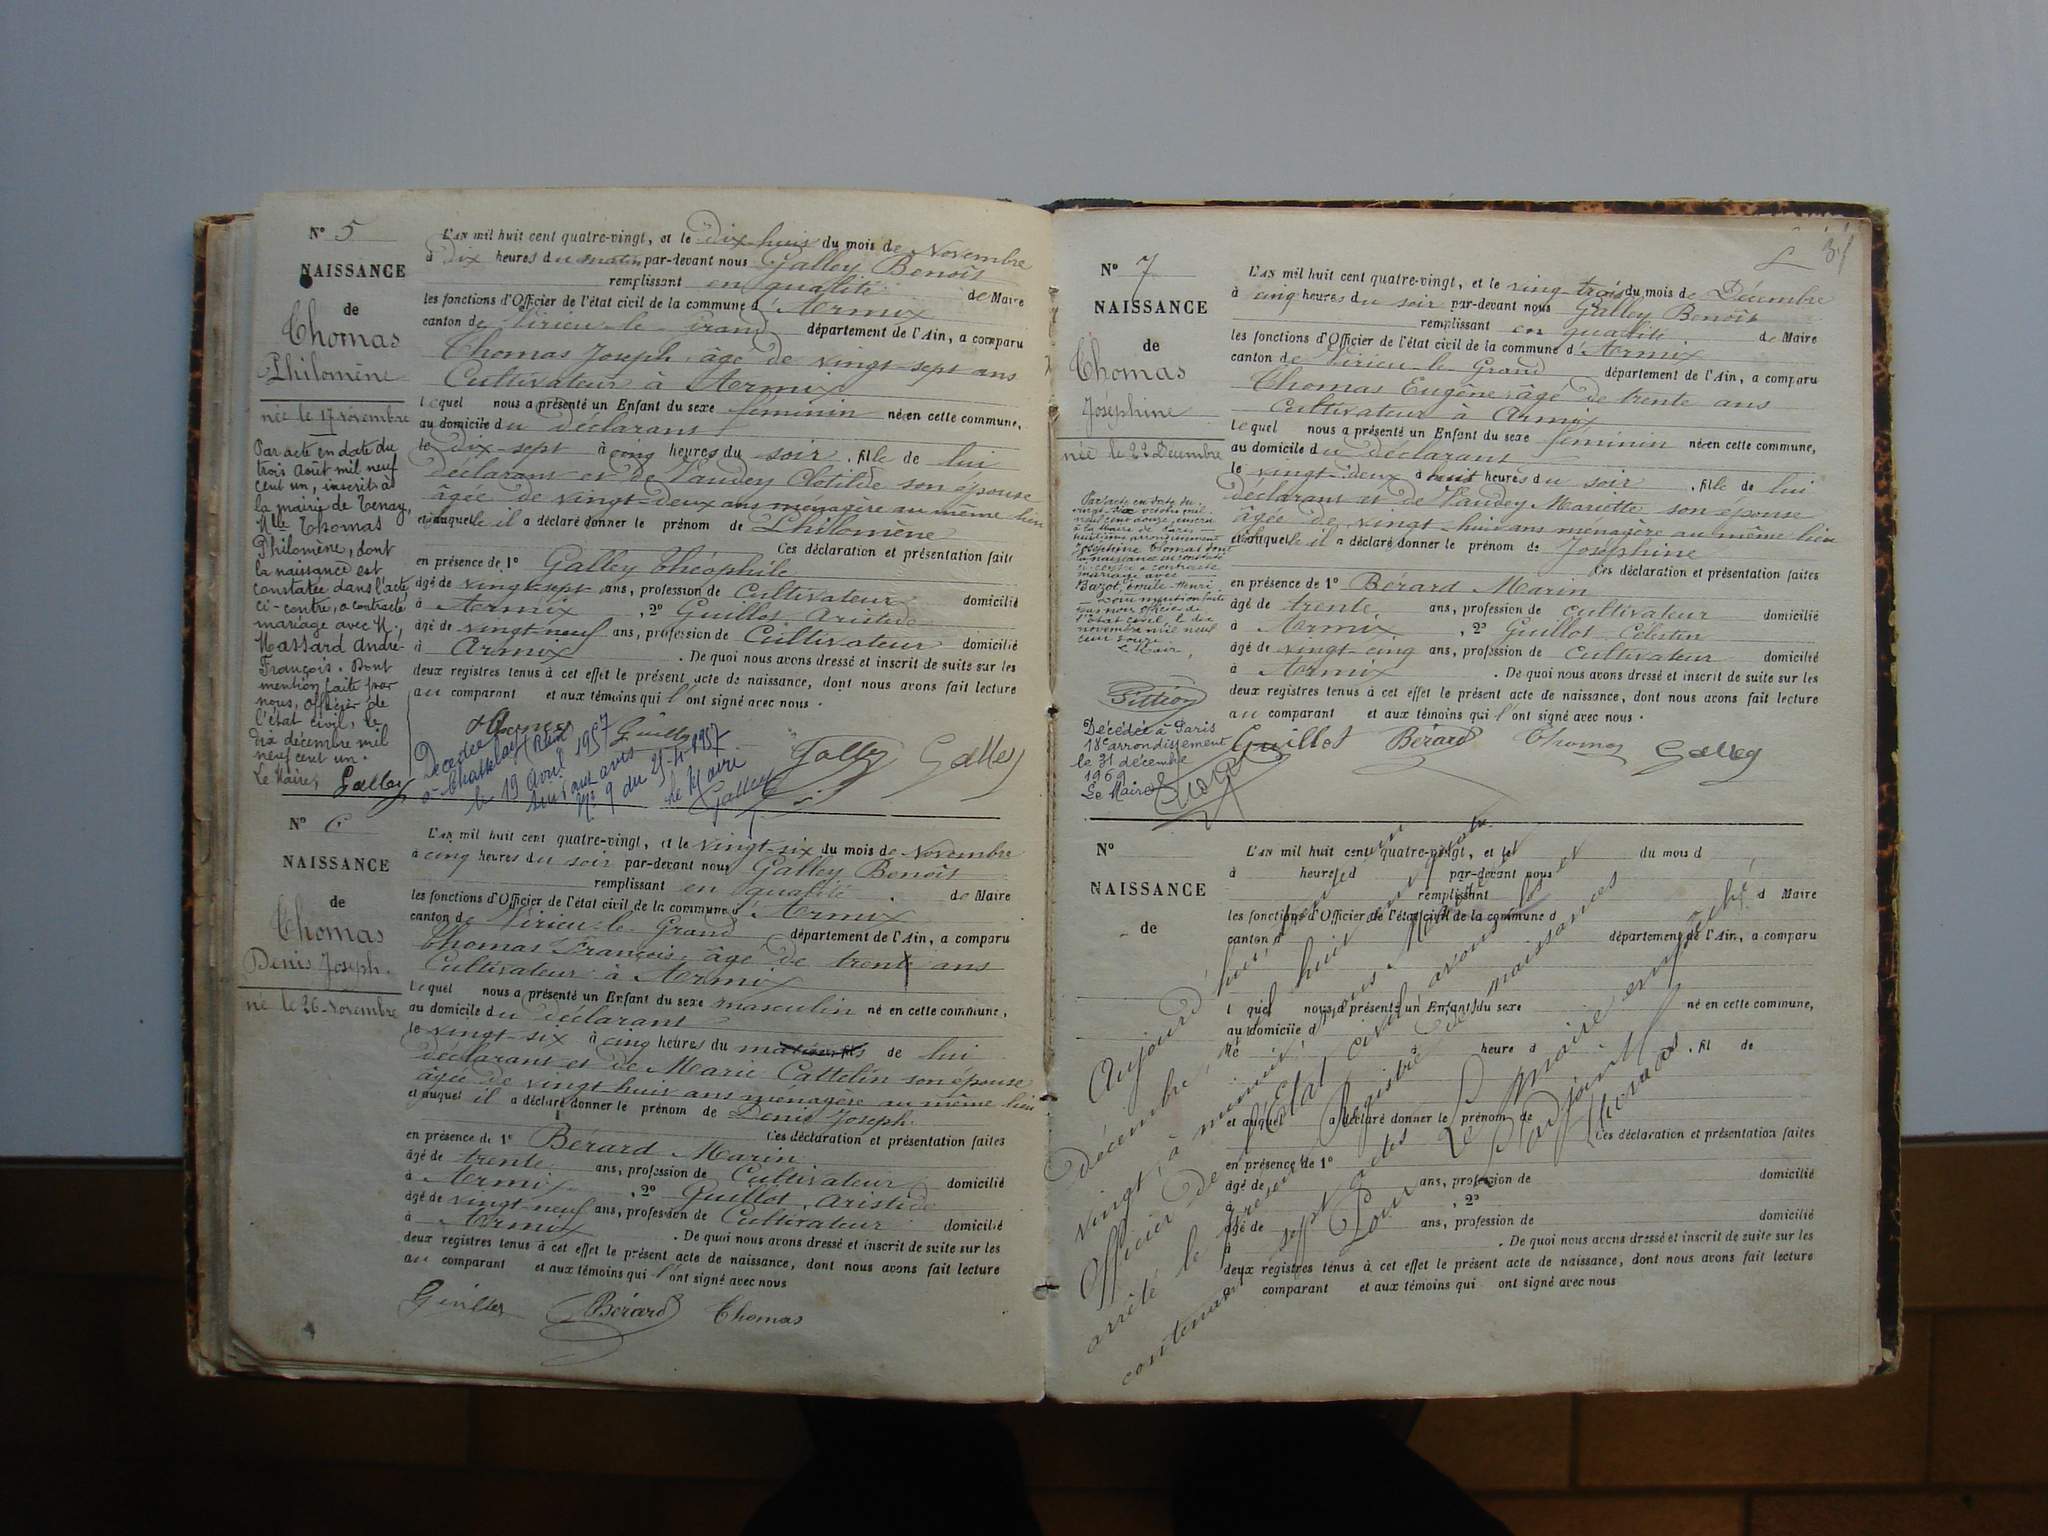 N° 5
NAISSANCE
de
Thomas
Philomène
née le 17 novembre
Par acte en date du
trois août mil neuf
cent un, inscrit à
la mairie de Tenay,
Mlle Thomas
Philomène, dont
la naissance est
constatée dans l'acte
ci-contre, a contracté
mariage avec M.
Massard André-
François. Dont
mention faite par
nous, officier de
l'état civil, le
dix décembre mil
neuf cent un.
Le Maire, Galley
L'AN mil huit cent quatre-vingt, et le dix-huit du mois de Novembre
à dix heures du matin par-devant nous Galley Benoît
remplissant en qualité de Maire
les fonctions d'Officier de l'état civil de la commune d'Armix
canton de Virieu-le-Grand département de l'Ain, a comparu
Thomas Joseph âgé de vingt-sept ans
Cultivateur à Armix
lequel nous a présenté un Enfant du sexe féminin né en cette commune,
au domicile du déclarant
le dix-sept à cinq heures du soir, fille de lui
déclarant et de Vaudey Clotilde son épouse
âgée de vingt-deux ans ménagère au même lieu
et auquel il a déclaré donner le prénom de Philomène
Ces déclaration et présentation faites
en présence de 1° Galley Théophile
âgé de vingt-sept ans, profession de Cultivateur domicilié
à Armix, 2° Guillot Aristide
âgé de vingt-neuf ans, profession de Cultivateur domicilié
à Armix. De quoi nous avons dressé et inscrit de suite sur les
deux registres tenus à cet effet le présent acte de naissance, dont nous avons fait lecture
au comparant et aux témoins qui l'ont signé avec nous.
Thomas Guillot Galley Galley
Décédée
à Chatelay (Ain)
le 19 Avril 1957
suivant avis
N° 9 du 21-4-1957
Le Maire
Galley
N° 6
NAISSANCE
de
Thomas
Denis Joseph.
né le 26 Novembre
L'AN mil huit cent quatre-vingt, et le vingt-six du mois de Novembre
à cinq heures du soir par-devant nous Galley Benoît
remplissant en qualité de Maire
les fonctions d'Officier de l'état civil de la commune d'Armix
canton de Virieu-le-Grand département de l'Ain, a comparu
Thomas François âgé de trente ans
Cultivateur à Armix
lequel nous a présenté un Enfant du sexe masculin né en cette commune,
au domicile du déclarant
le vingt-six à cinq heures du matin fils de lui
déclarant et de Marie Cattelin son épouse
âgée de vingt huit ans ménagère au même lieu
et auquel il a déclaré donner le prénom de Denis Joseph.
Ces déclaration et présentation faites
en présence de 1° Bérard Marin
âgé de trente ans, profession de Cultivateur domicilié
à Armix, 2° Guillot Aristide
âgé de vingt-neuf ans, profession de Cultivateur domicilié
à Armix. De quoi nous avons dressé et inscrit de suite sur les
deux registres tenus à cet effet le présent acte de naissance, dont nous avons fait lecture
au comparant et aux témoins qui l'ont signé avec nous
Guillot Bérard Thomas
N° 7
NAISSANCE
de
Thomas
Joséphine
née le 22 Décembre
Par acte en date du
vingt-six octobre mil
neuf cent douze, inscrit
à la Mairie de Paris
huitième arrondissement
Joséphine Thomas dont
la naissance est constatée
ci-contre a contracté
mariage avec
Bazot, Emile-Henri
Dont mention faite
par nous officier de
l'état civil, le dix
novembre mil neuf
cent douze.
Le Maire,
Décédée à Paris
18e arrondissement
le 31 décembre
1969
Le Maire
L'AN mil huit cent quatre-vingt, et le vingt-trois du mois de Décembre
à cinq heures du soir par-devant nous Galley Benoît
remplissant en qualité de Maire
les fonctions d'Officier de l'état civil de la commune d'Armix
canton de Virieu-le-Grand département de l'Ain, a comparu
Thomas Eugène âgé de trente ans
Cultivateur à Armix
lequel nous a présenté un Enfant du sexe féminin né en cette commune,
au domicile du déclarant
le vingt-deux à huit heures du soir, fille de lui
déclarant et de Vaudey Mariette son épouse
âgée de vingt-huit ans ménagère au même lieu
et auquel il a déclaré donner le prénom de Joséphine
Ces déclaration et présentation faites
en présence de 1° Bérard Marin
âgé de trente ans, profession de cultivateur domicilié
à Armix, 2° Guillot Célestin
âgé de vingt-cinq ans, profession de cultivateur domicilié
à Armix. De quoi nous avons dressé et inscrit de suite sur les
deux registres tenus à cet effet le présent acte de naissance, dont nous avons fait lecture
au comparant et aux témoins qui l'ont signé avec nous.
Guillot Bérard Thomas Galley
N°
NAISSANCE
de
L'AN mil huit cent quatre-vingt, et le du mois d
à heures d par-devant nous
remplissant d Maire
les fonctions d'Officier de l'état civil de la commune d
canton d département de l'Ain, a comparu
l quel nous a présenté un Enfant du sexe né en cette commune,
au domicile d
le à heure d, fil de
et auquel a déclaré donner le prénom de
Ces déclaration et présentation faites
en présence de 1°
âgé de ans, profession de domicilié
à, 2°
âgé de ans, profession de domicilié
à. De quoi nous avons dressé et inscrit de suite sur les
deux registres tenus à cet effet le présent acte de naissance, dont nous avons fait lecture
au comparant et aux témoins qui ont signé avec nous
Aujourd'hui, trente un
décembre, mil huit cent quatre
vingt, à minuit, nous Maire et
Officier de l'État civil avons clos et
arrêté le présent Registre de naissances
contenant sept actes
Pour Le Maire empêché
L'adjoint
Thomas